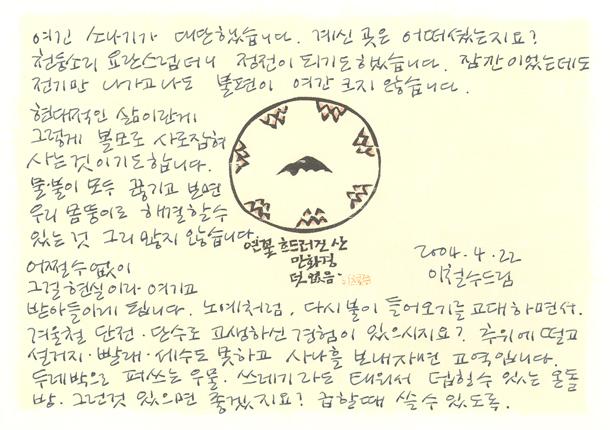 여긴 소나기가 대단했습니다. 계신 곳은 어떠셨는지요?
천둥소리 요란스럽더니 정전이 되기도 했습니다. 잠깐이었는데도
전기만 나가고 나도 불편이 여간 크지 않습니다.
현대적인 삶이란게
그렇게 볼모로 사로잡혀
사는 것이기도 합니다.
물·불이 모두 끊기고 보면
우리 몸뚱이로 해결할 수
있는 것 그리 많지 않습니다.
어쩔 수 없이
그걸 현실이라 여기고
받아들이게 됩니다. 노예처럼, 다시 불이 들어오기를 고대하면서.
겨울철 단전·단수로 고생하신 경험이 있으시지요? 추위에 떨고
설거지·빨래·세수도 못하고 사나흘 보내자면 고역입니다.
두레박으로 퍼쓰는 우물. 쓰레기라도 태워서 덥힐 수 있는 온돌
방. 그런것 있으면 좋겠지요? 급할때 쓸 수 있도록.
연꽃 흐드러진 산
만화경
덧없음.
2004.4.22
이철수드림